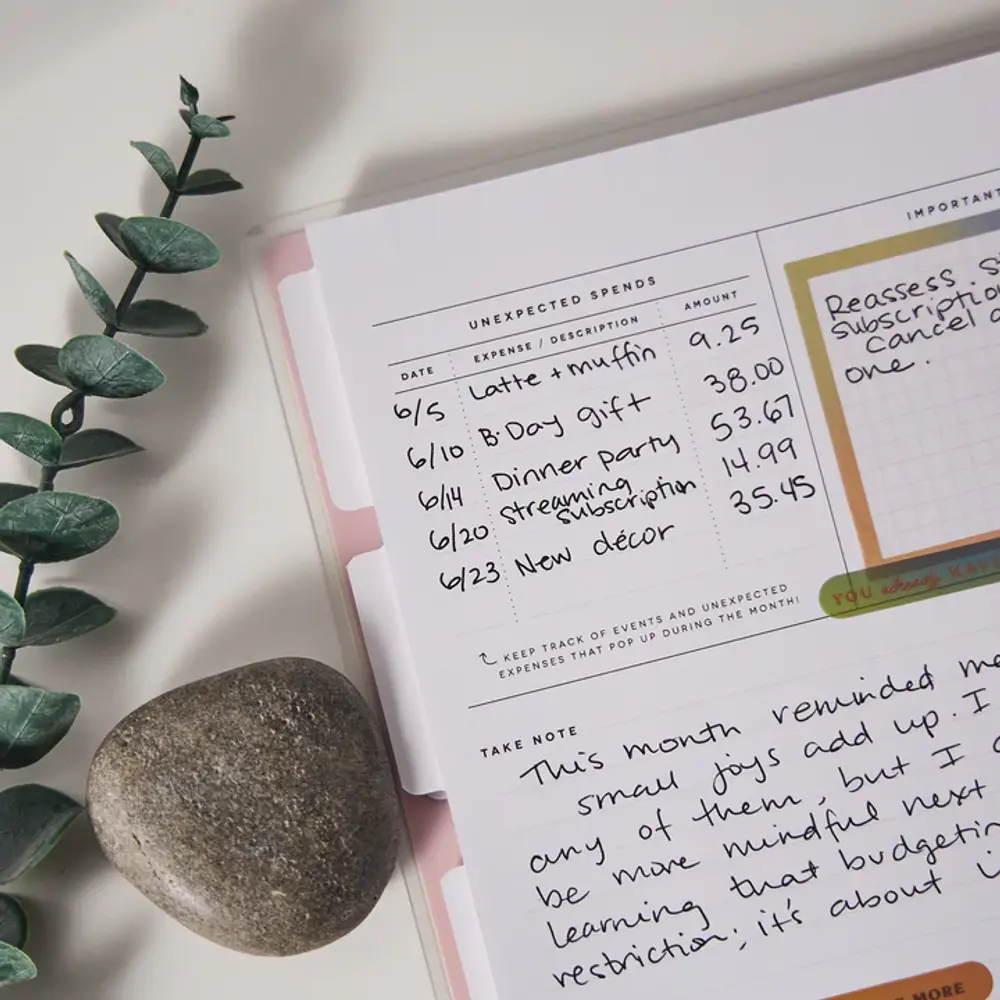 UNEXPECTED SPENDS
DATE EXPENSE / DESCRIPTION AMOUNT
6/5 Latte + muffin 9.25
6/10 B-Day gift 38.00
6/14 Dinner party 53.67
6/20 Streaming subscription 14.99
6/23 New décor 35.45
KEEP TRACK OF EVENTS AND UNEXPECTED
EXPENSES THAT POP UP DURING THE MONTH!
IMPORTANT
Reassess
subscription
Cancel
one.
YOU already
TAKE NOTE
This month reminded
small joys add up. I
any of them, but I
be more mindful next
learning that
restriction; it's about
MORE